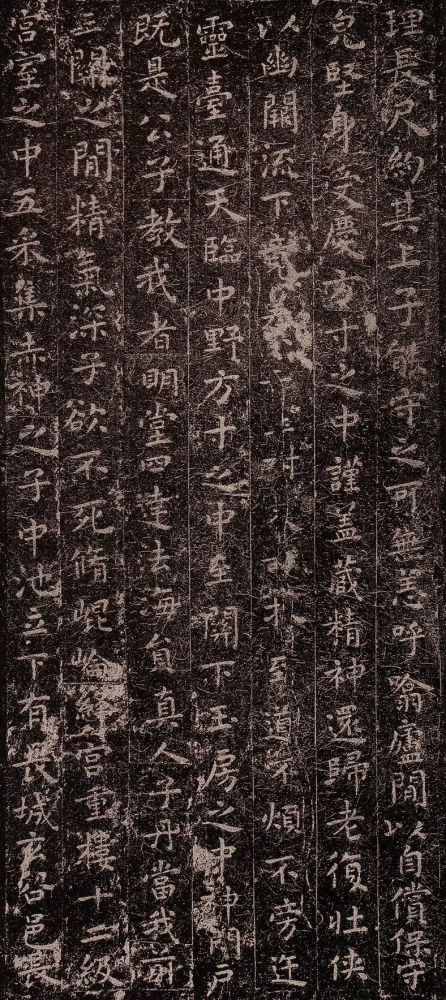 理長尺約其上子能守之可無恙呼噏廬間以自償保守
皃堅身受慶方寸之中謹蓋藏精神還歸老復壯俠
以幽闕流下至道不煩不旁迕
靈臺通天臨中野方寸之中至關下玉房之中神門戶
既是公子教我者明堂四達法海員真人子丹當我前
三關之間精氣深子欲不死脩崐崘絳宮重樓十二級
宮室之中五采集赤神之子中池立下有長城玄谷邑長